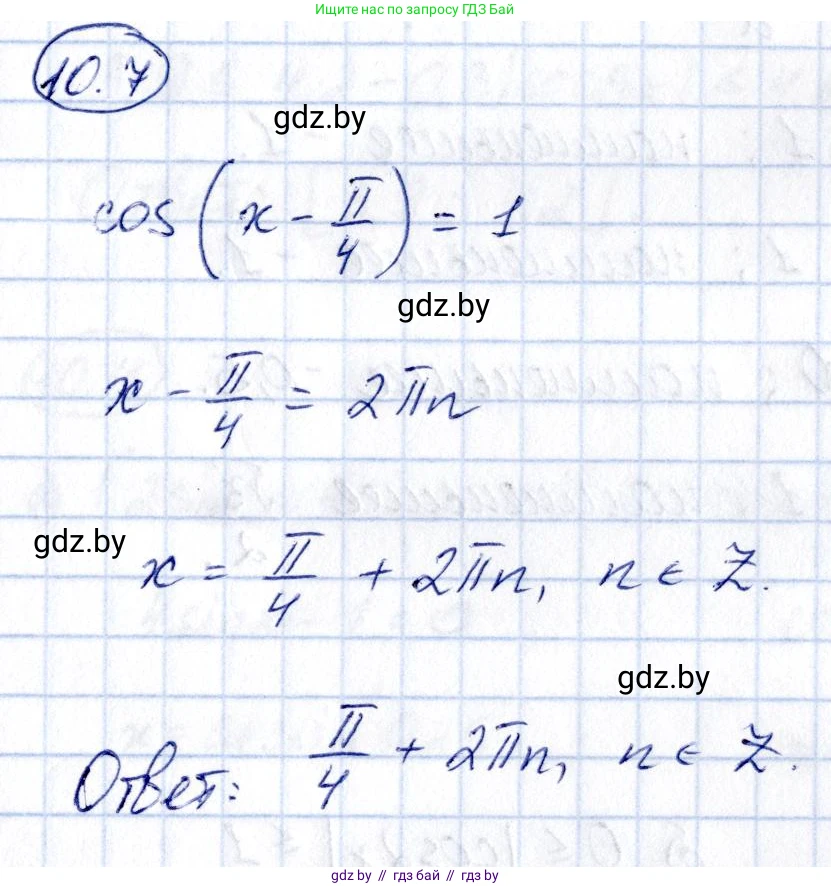 Ищите нас по запросу ГДЗ Бай
10.7
gdz.by
cos(x - π/4) = 1
gdz.by
x - π/4 = 2πn
gdz.by
x = π/4 + 2πn, n ∈ Z.
gdz.by
Ответ: π/4 + 2πn, n ∈ Z.
gdz.by // гдз бай // гдз by